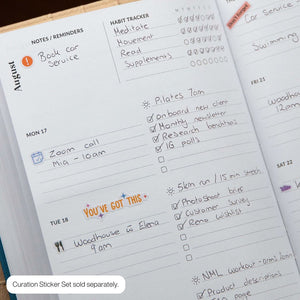 NOTES / REMINDERS
Book car
Service
August
HABIT TRACKER
M T W T F S S
Meditate
Movement
Read
Supplements
Car Service
Swimming
MON 17
Zoom call
Mia - 10am
Pilates 7am
onboard new client
Monthly newsletter
Research
IG polls
FRI 21
Woodhouse
12am
TUE 18
YOU'VE GOT THIS
Woodhouse w Elena
9am
5km run / 15 min stretch
Photoshoot brief
Customer Survey
Reno wishlist
SAT 22
NML workout - arms
Product descriptions
page
Curation Sticker Set sold separately.